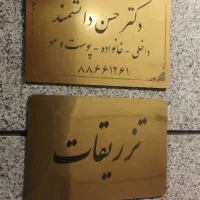 دکتر حسن دانشمند
داخلی - خانواده - پوست و مو
۸۸۶۶۱۲۶۱
تزریقات